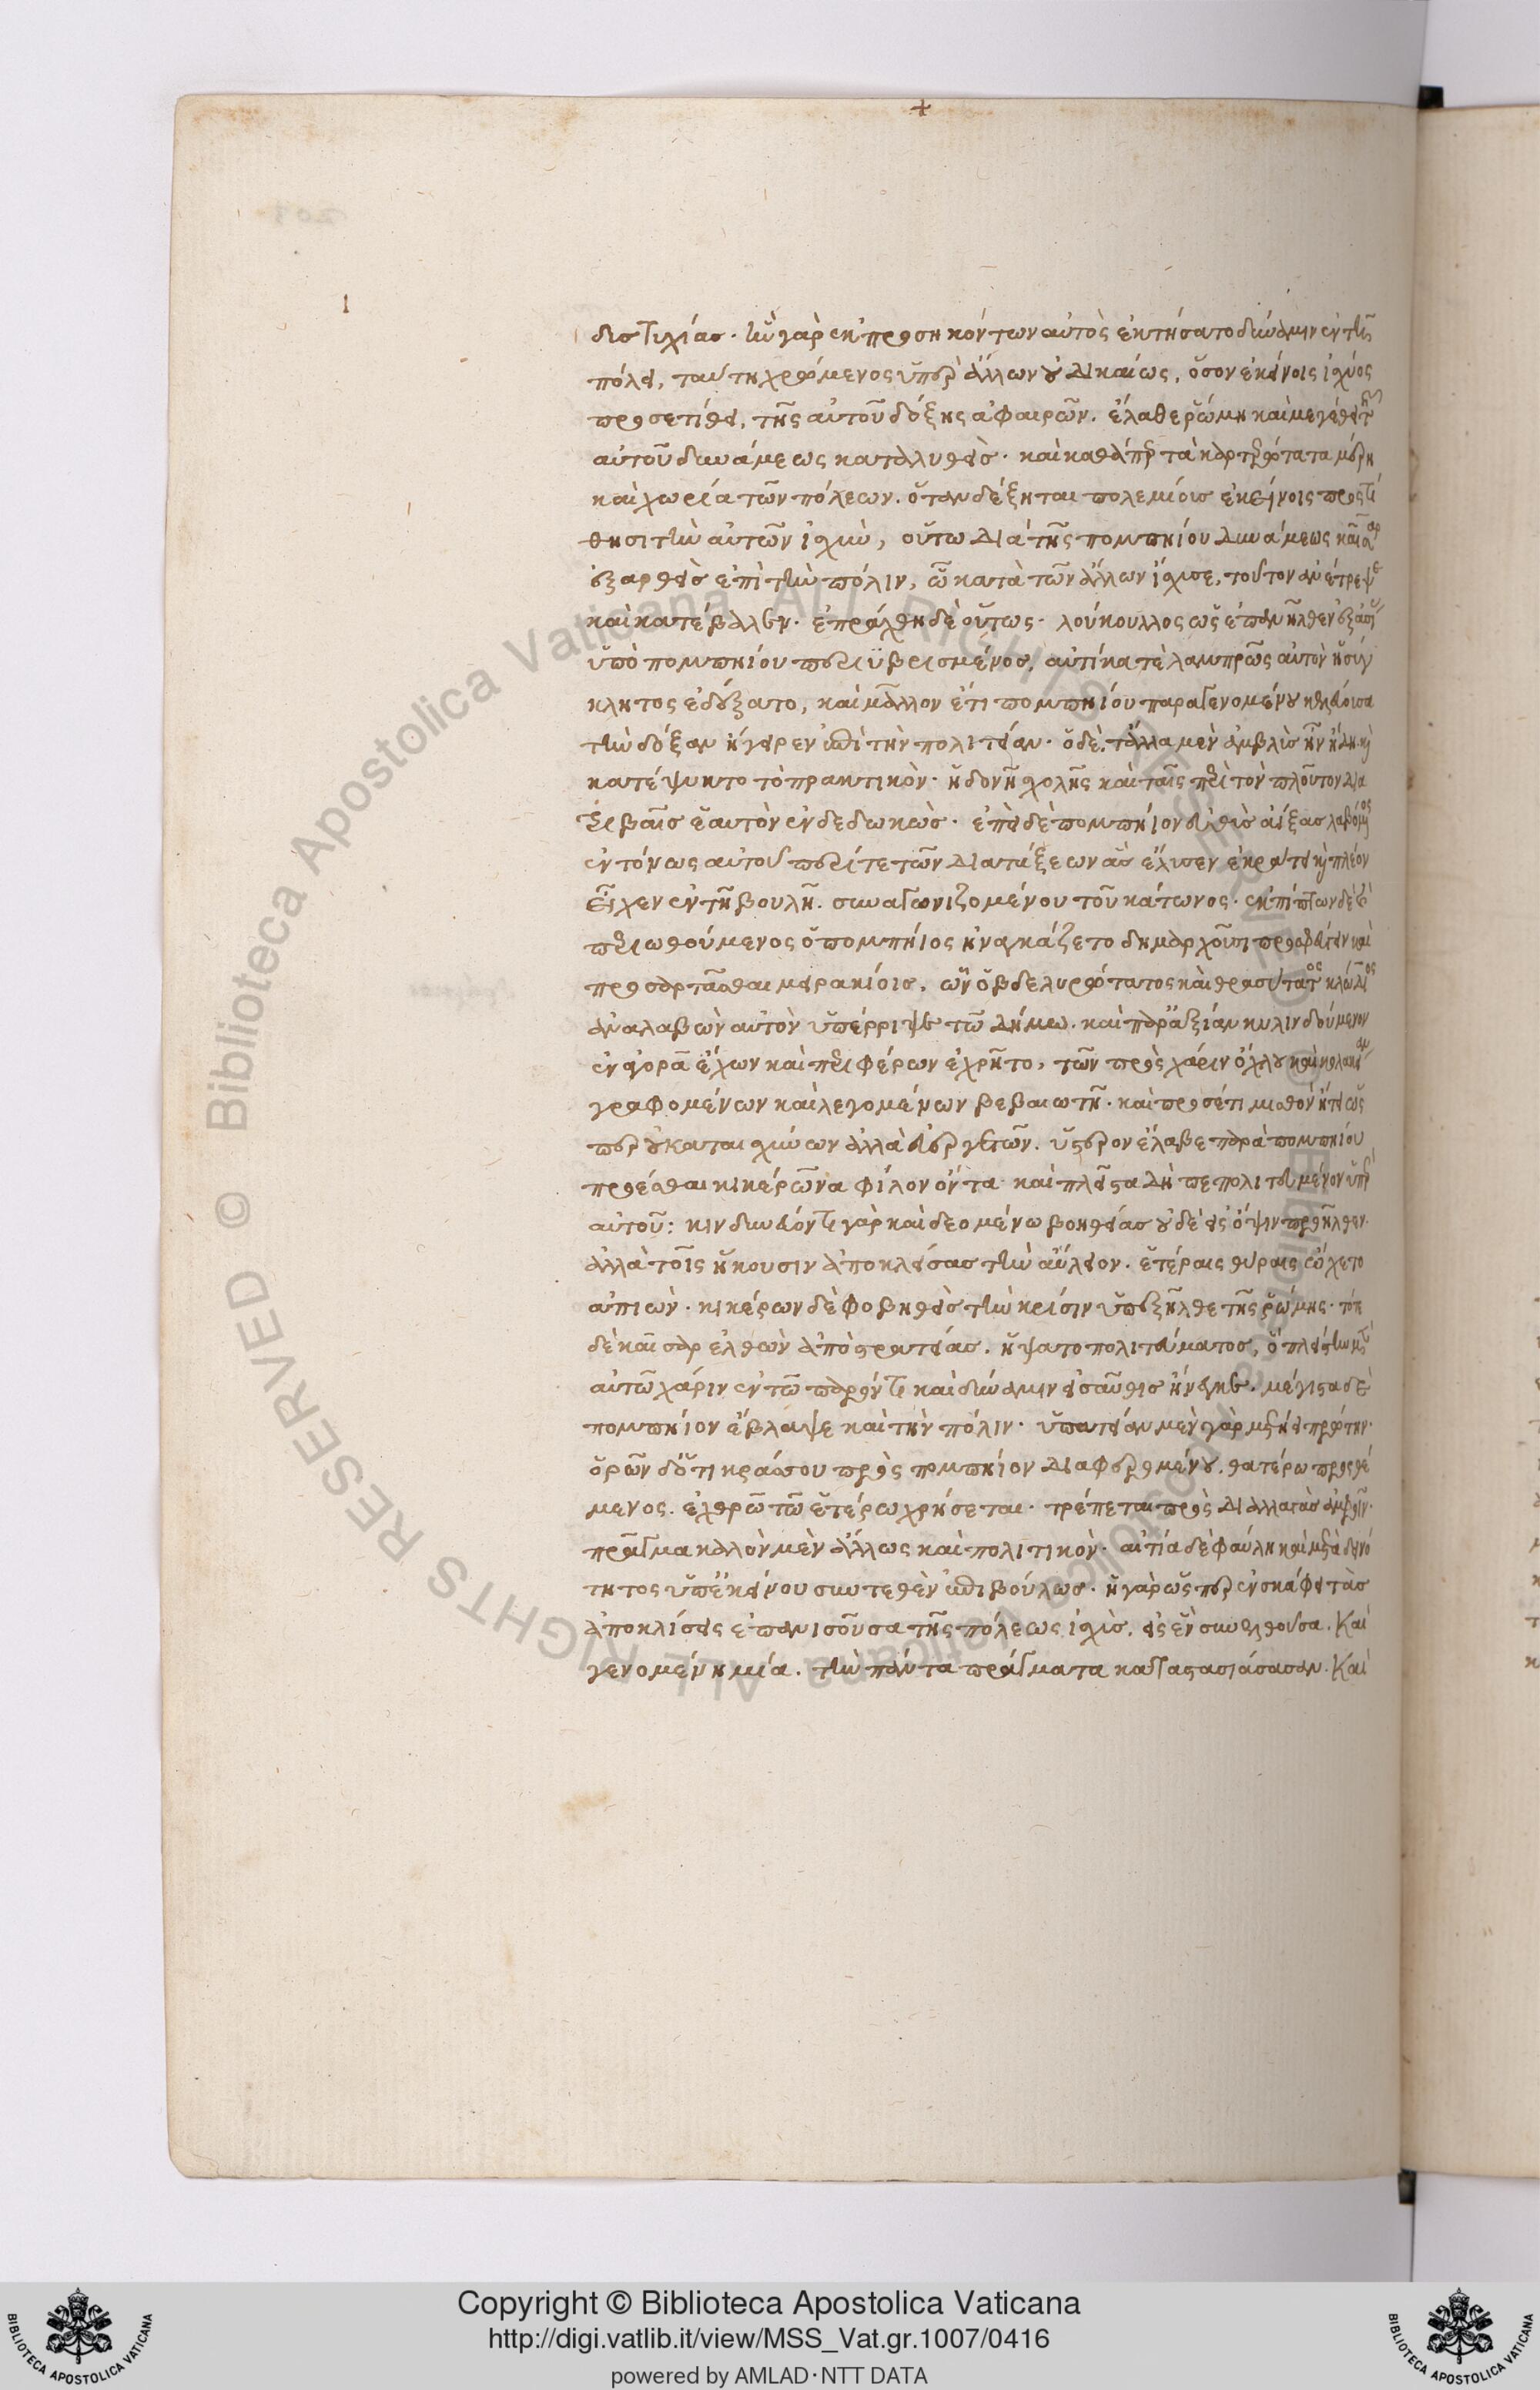 δυστυχίας. ἣν γὰρ ἐκ προσηκόντων αὐτὸς ἐκτήσατο δύναμιν ἐν τῆ
πόλει, ταύτη χρώμενος ὑπὲρ ἄλλων οὐ δικαίως, ὅσον ἐκείνοις ἰσχύος
προσετίθει, τῆς αὐτοῦ δόξης ἀφαιρῶν. ἔλαθε ῥώμη καὶ μεγέθει τῆς
αὐτοῦ δυνάμεως καταλυθείς. καὶ καθάπερ τὰ καρτερώτατα μέρη
καὶ χωρία τῶν πόλεων. ὅταν δέξηται πολεμίους ἐκείνοις προστί
θησι τὴν αὐτῶν ἰσχὺν, οὕτω διὰ τῆς πομπηίου δυνάμεως καῖσαρ
ἐξαρθεὶς ἐπὶ τὴν πόλιν, ὧ κατὰ τῶν ἄλλων ἴσχυσε, τοῦτον ἀνέτρεψε
καὶ κατέβαλεν. ἐπράχθη δὲ οὕτως. λούκουλλος ὡς ἐπανῆλθεν ἐξ ἀσίας
ὑπὸ πομπηίου περιϋβρισμένος, αὐτίκα τὲ λαμπρῶς αὐτὸν ἡ σύγ
κλητος ἐδέξατο, καὶ μᾶλλον ἔτι πομπηίου παραγενομένου κολούουσα
τὴν δόξαν ἤγειρεν ἐπὶ τὴν πολιτείαν. ὁ δὲ, τἄλλα μὲν ἀμβλὺς ἦν ἤδη καὶ
κατέψυκτο τὸ πρακτικὸν. ἡδονῆ σχολῆς καὶ ταῖς περὶ τὸν πλοῦτον δια
τριβαῖς ἑαυτὸν ἐνδεδωκὼς. ἐπὶ δὲ πομπήιον εὐθὺς ἀΐξας λαβόμενος
ἐντόνως αὐτοῦ περί τε τῶν διατάξεων ἃς ἔλυσεν ἐκράτει καὶ πλέον
εἶχεν ἐν τῆ βουλῆ. συναγωνιζομένου τοῦ κάτωνος. ἐκπίπτων δὲ καὶ
περιωθούμενος ὁ πομπήιος ἠναγκάζετο δημαρχοῦσι προσφεύγειν καὶ
προσαρτᾶσθαι μειρακίοις, ὧν ὁ βδελυρώτατος καὶ θρασύτατος κλώδιος
ἀναλαβὼν αὐτὸν ὑπέρριψε τῶ δήμω. καὶ παρ' ἀξίαν κυλινδούμενον
ἐν ἀγορᾶ ἔχων καὶ περιφέρων ἐχρῆτο, τῶν πρὸς χάριν ὄχλου καὶ κολακείαν
γραφομένων καὶ λεγομένων βεβαιωτῆ. καὶ προσέτι μισθὸν ἤτει ὥς
περ οὐ καταισχύνων ἀλλὰ εὐεργετῶν. ὕστερον ἔλαβε παρὰ πομπηίου
προέσθαι κικέρωνα φίλον ὄντα καὶ πλεῖστα δὴ πεπολιτευμένον ὑπὲρ
αὐτοῦ: κινδυνεύοντι γὰρ καὶ δεομένω βοηθείας οὐδὲ εἰς ὄψιν προῆλθεν.
ἀλλὰ τοῖς ἥκουσιν ἀποκλείσας τὴν αὔλειον. ἑτέραις θύραις ὤχετο
ἀπιών. κικέρων δὲ φοβηθεὶς τὴν κρίσιν ὑπεξῆλθε τῆς ῥώμης. τότε
δὲ καῖσαρ ἐλθὼν ἀπὸ στρατείας. ἥψατο πολιτεύματος, ὃ πλείστην μὲν
αὐτῶ χάριν ἐν τῶ παρόντι καὶ δύναμιν εἰσαῦθις ἤνεγκε. μέγιστα δὲ
πομπήιον ἔβλαψε καὶ τὴν πόλιν. ὑπατείαν μὲν γὰρ μετήει πρώτην.
ὁρῶν δ' ὅτι κράσσου πρὸς πομπήιον διαφερομένου. θατέρω προσθέ
μενος. ἐχθρῶ τῶ ἑτέρω χρήσεται. τρέπεται πρὸς διαλλαγὰς ἀμφοῖν.
πρᾶγμα καλὸν μὲν ἄλλως καὶ πολιτικὸν. αἰτία δὲ φαύλη καὶ μετὰ δεινό
τητος ὑπ' ἐκείνου συντεθὲν ἐπιβούλως. ἡ γὰρ ὥσπερ ἐν σκάφει τὰς
ἀποκλίσεις ἐπανισοῦσα τῆς πόλεως ἰσχὺς, εἰς ἓν συνελθοῦσα. καὶ
γενομένη μία. τὴν πάντα πράγματα καταστασιάσασαν. καὶ
Copyright © Biblioteca Apostolica Vaticana
http://digi.vatlib.it/view/MSS_Vat.gr.1007/0416
powered by AMLAD·NTT DATA
BIBLIOTECA APOSTOLICA VATICANA
BIBLIOTECA APOSTOLICA VATICANA